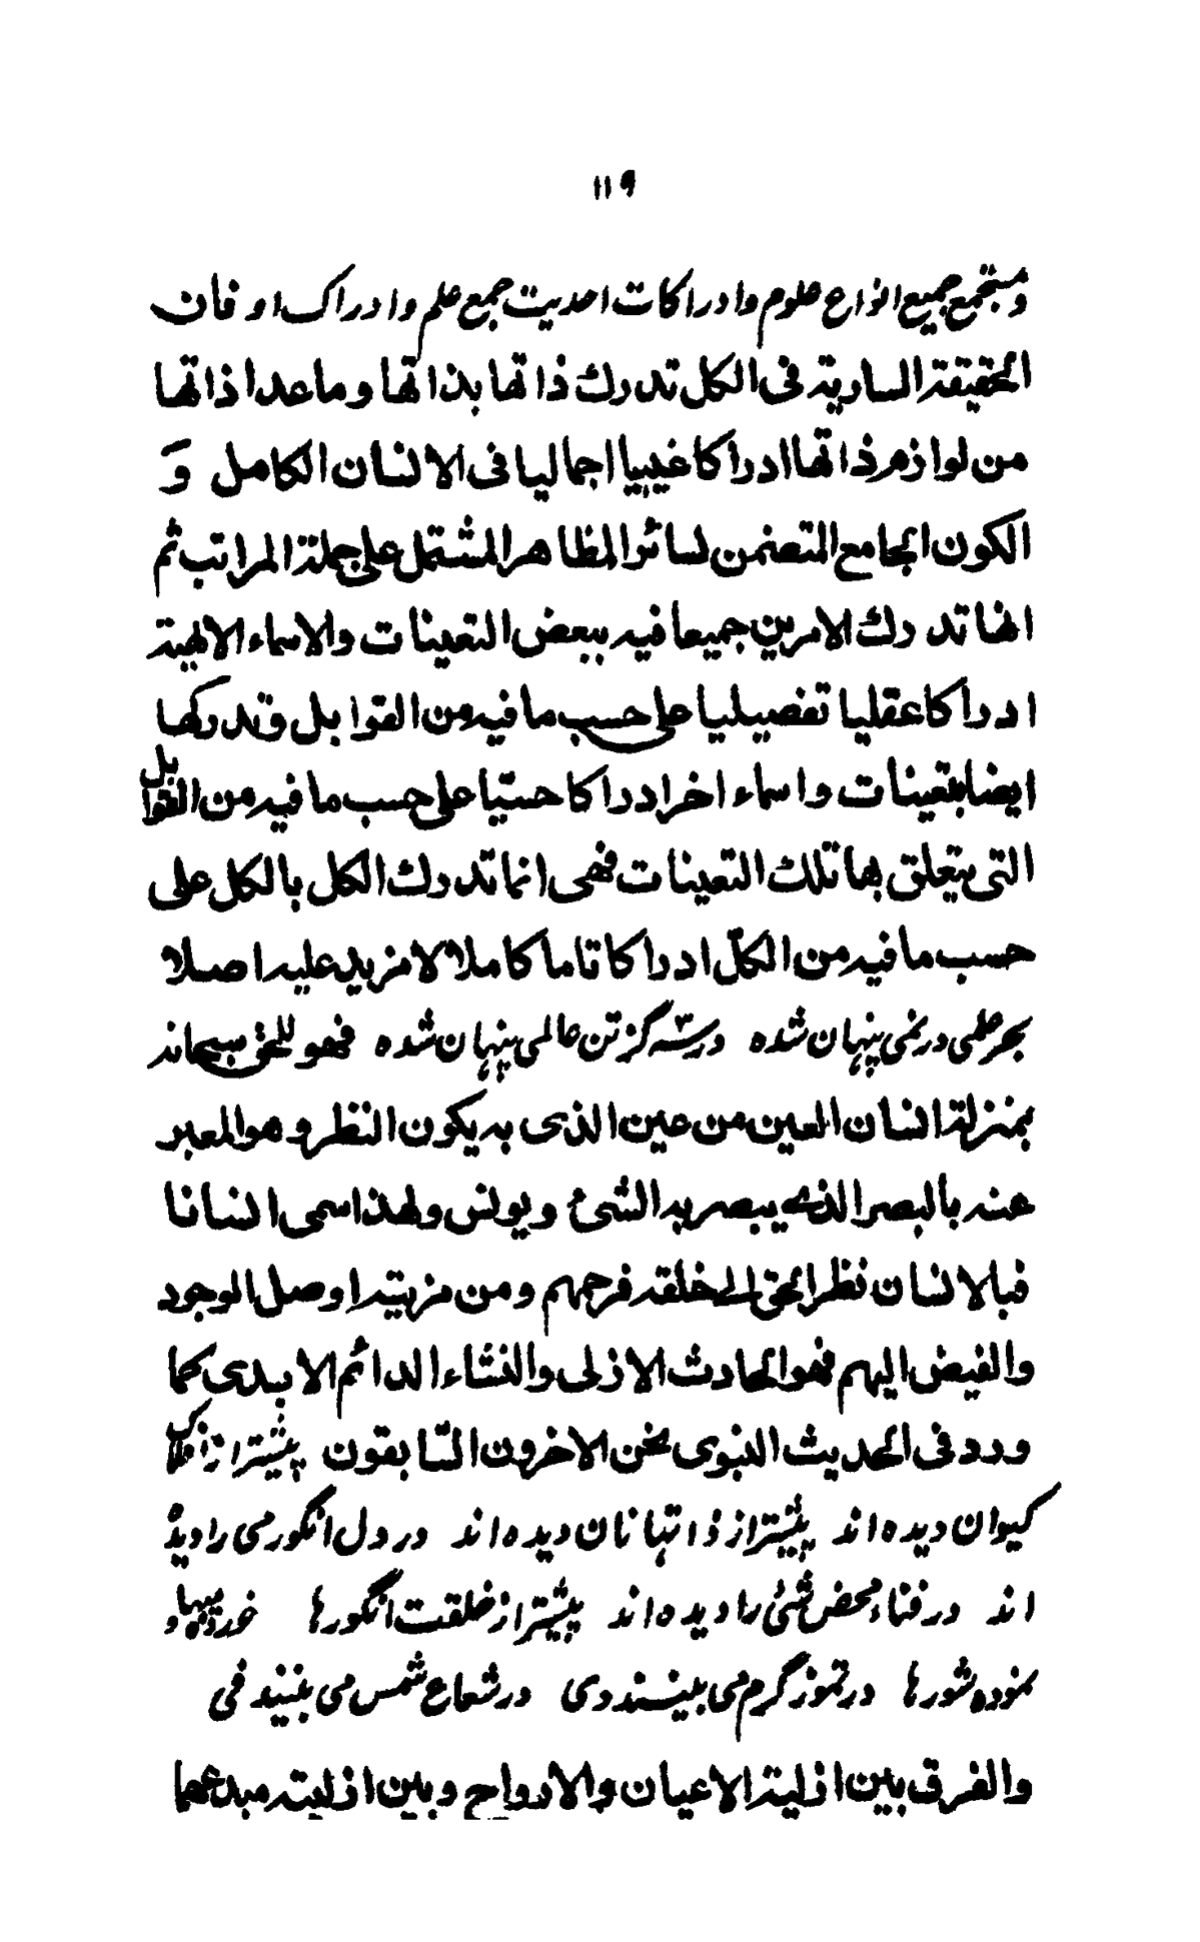 ١١٩
و مستجمع جمیع انواع علوم و ادراکات احدیت جمع علم و ادراک او فان
الحقیقة الساریة فی الکل تدرك ذاتها بذاتها و ما عدا ذاتها
من لوازم ذاتها ادراکا غیبیا اجمالیا فی الانسان الکامل وَ
الکون الجامع المتضمن لسائر المظاهر المشتمل علی جملة المراتب ثم
انها تدرك الامرین جمیعا فیه ببعض التعینات والاسماء الالهیة
ادراکا عقلیا تفصیلیا علی حسب ما فیه من القوابل و تدرکها
ایضا بتعینات و اسماء اخر ادراکا حسّیا علی حسب ما فیه من القوابل
التی یتعلق بها تلك التعینات فهی انما تدرك الکل بالکل علی
حسب ما فیه من الکلّ ادراکا تاما کاملا لا مزید علیه اصلا
بحر علمی در نمی پنهان شده در سه گز تن عالمی پنهان شده فهو للحق سبحانه
بمنزلة انسان العین من عین الذی به یکون النظر و هو المعبر
عنه بالبصر الذی یبصر به الشئ و یونس و لهذا سمی انسانا
فبالانسان نظر الحق الی خلقه فرحمهم و من مزیته اوصل الوجود
والفیض الیهم فهو الحادث الازلی والنشاء الدائم الابدی کما
ورد فی الحدیث النبوی نحن الاخرون السّابقون پیشتر از افلاک
کیوان دیده اند پیشتر از دانها نان دیده اند در دل انگور می را دیدۀ
اند در فناء محض شئی را دیده اند پیشتر از خلقت انگورها خورده میها و
نموده شورها در تموز گرم می بینند دی در شعاع شمس می بینند فی
والفرق بین ازلیة الاعیان والارواح و بین ازلیته مبدعهما